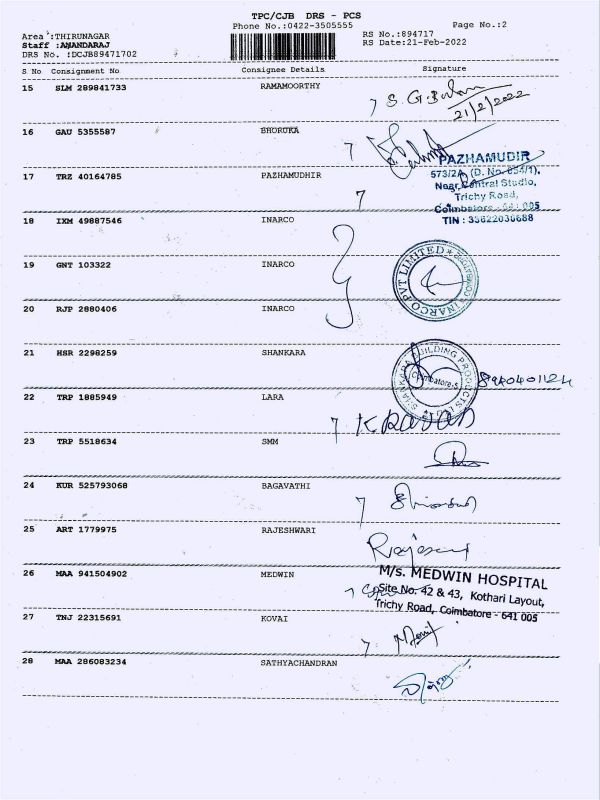 TPC/CJB DRS - PCS
Phone No.:0422-3505555
Page No.:2
Area :THIRUNAGAR
RS No.:894717
Staff :ANANDARAJ
RS Date:21-Feb-2022
DRS No. :DCJB89471702
S No Consignment No Consignee Details Signature
15 SLM 289841733 RAMAMOORTHY
21/2/2022
16 GAU 5355587 BHORUKA
17 TRZ 40164785 PAZHAMUDHIR
PAZHAMUDIR
573/2A, (D. No. 654/1),
Near Central Studio,
Trichy Road,
Coimbatore - 641 005
TIN : 33622036688
18 IXM 49887546 INARCO
19 GNT 103322 INARCO
INARCO PVT LIMITED
20 RJP 2880406 INARCO
21 HSR 2298259 SHANKARA
SHANKARA BUILDING PRODUCTS
Coimbatore-5
22 TRP 1885949 LARA
23 TRP 5518634 SMM
24 KUR 525793068 BAGAVATHI
25 ART 1779975 RAJESHWARI
26 MAA 941504902 MEDWIN
M/s. MEDWIN HOSPITAL
Site No. 42 & 43, Kothari Layout,
Trichy Road, Coimbatore - 641 005
27 TNJ 22315691 KOVAI
28 MAA 286083234 SATHYACHANDRAN